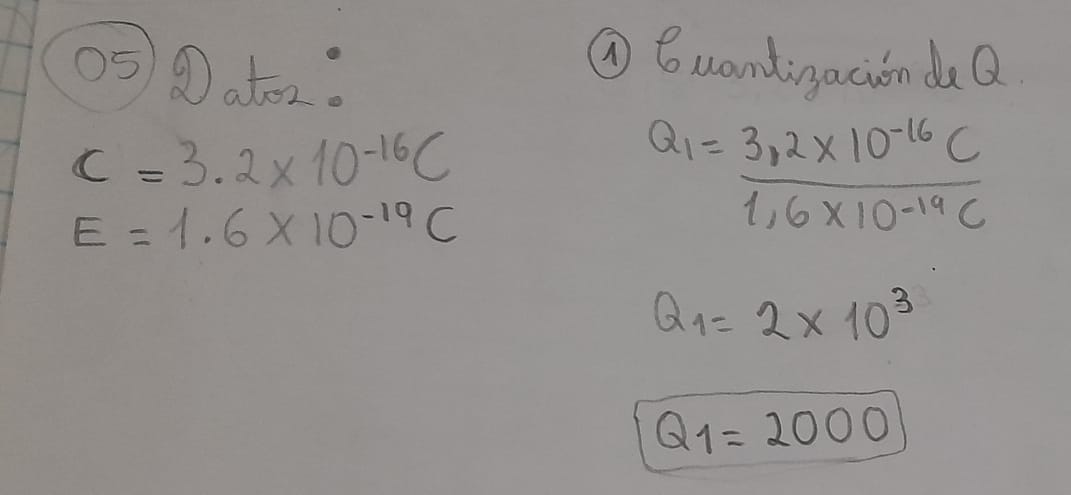 05 Datos:
C = 3.2 x 10^-16 C
E = 1.6 x 10^-19 C
① Cuantización de Q.
Q1 = 3,2 x 10^-16 C
1,6 x 10^-19 C
Q1 = 2 x 10^3
Q1 = 2000